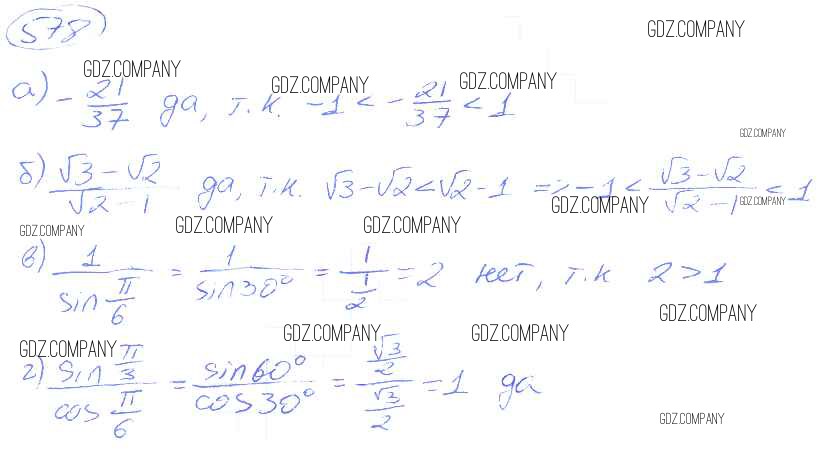 578
GDZ.COMPANY
а) -21/37 да, т.к. -1 < -21/37 < 1
GDZ.COMPANY GDZ.COMPANY GDZ.COMPANY
GDZ.COMPANY
б) (√3-√2)/(√2-1) да, т.к. √3-√2<√2-1 => -1 < (√3-√2)/(√2-1) < 1
GDZ.COMPANY GDZ.COMPANY
GDZ.COMPANY GDZ.COMPANY GDZ.COMPANY
в) 1/(sin π/6) = 1/(sin 30°) = 1/(1/2) = 2 нет, т.к 2>1
GDZ.COMPANY
GDZ.COMPANY GDZ.COMPANY GDZ.COMPANY
г) (sin π/3)/(cos π/6) = (sin 60°)/(cos 30°) = (√3/2)/(√3/2) = 1 да
GDZ.COMPANY